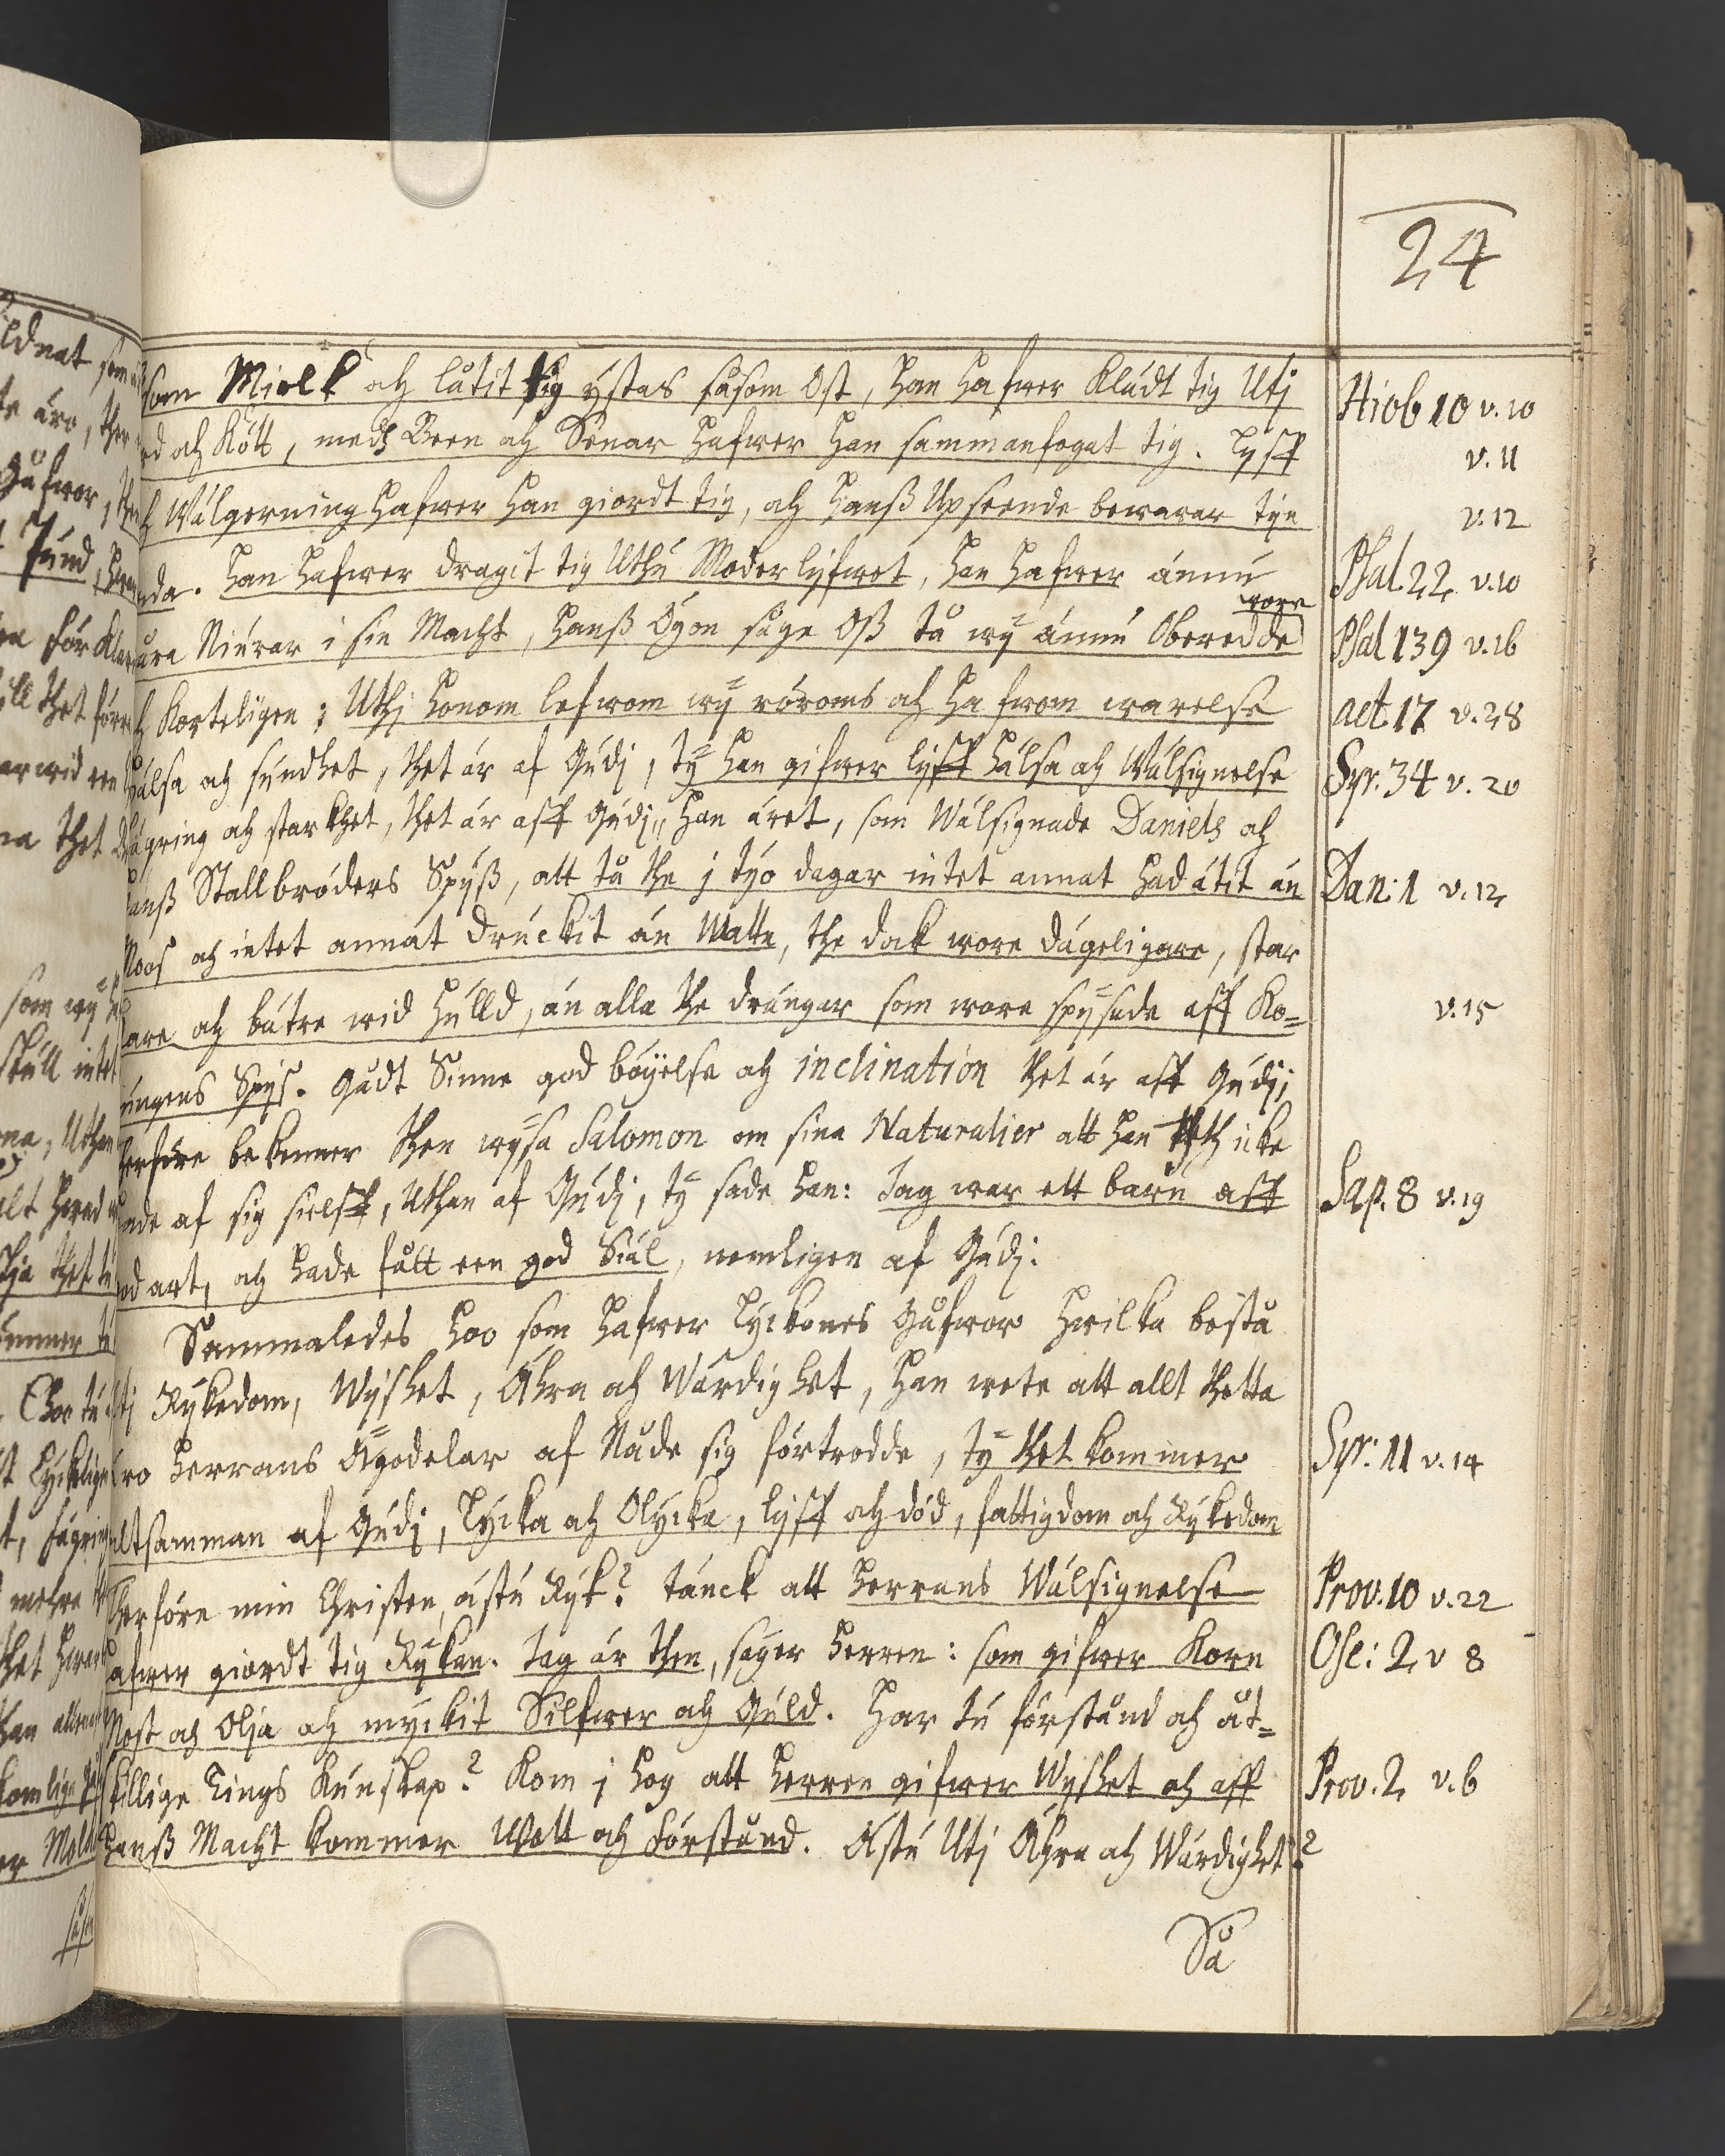 24
som Miolk och låtit tig ystas såsom Ost, han hafwer Klädt tig Utj
och Kött, medh Been och Senar hafwer han sammanfogat tig. Lyff
Wälgerning hafwer han giordt tig, och hanß Upseende bewarar tin
anda. Han hafwer dragit tig Uthu Moderlyfwet, han hafwer ännu
wore
Niurar i sin Macht, hanß Ögon såge Oß tå wy ännu Oberedde
Korteligen; Uthj honom lefwom wy röroms och hafwom warelse
Hälsa och sundhet, thet är af Gudj, ty han gifwer lyff hälsa och Wälsignelse
Fägring och starkhet, thet är aff Gudj, Han äret, som Wälsignade Daniels och
hanß Stallbröders Spyß, att tå the j tyo dagar intet annat had ätit än
Moos och intet annat druckit än Wattn, the dock wore dägeligare, star
kare och bätre wid hulld, än alla the drängar som wore spysade aff Ko=
nungens Spys. Gådt Sinne god böyelse och inclination thet är aff Gudj;
therföre bekenner then wysa Salomon om sina Naturalier att han th icke
hade af sig sielff, Uthan af Gudj, ty sade han: Jag war ett barn aff
god art, och hade fått een god Siäl, nemligen af Gudj.
Sammaledes hoo som hafwer Lyckones Gåfwor hwilka bestå
utj Rykedom, Wyshet, Ähra och Wärdighet, han wete att allt thetta
äro Herrans Ägodelar af Nåde sig förtrodde, ty thet kommer
altsamman af Gudj, Lycka och Olycka, lyff och död, fattigdom och Rykedom
Therföre min Christen, ästu Ryk? tänck att Herrans Wälsignelse
hafwer giordt tig Rykan. Jag är then, säger Herren: som gifwer Korn
Most och Olja och myckit Silfwer och Guld. Har tu förstånd och åt=
skillige Tings Kunskap? Kom j hog att Herren gifwer Wyshet och aff
hanß Macht kommer Wett och Förstånd. Ästu Utj Ähra och Wärdighet?
Så
Hiob 10 v. 10
v. 11
v. 12
Psal. 22 v. 10
Psal 139 v. 16
act. 17 v. 28
Syr. 34 v. 20
Dan: 1 v. 12
v. 15
Sap. 8 v. 19
Syr: 11 v. 14
Prov. 10 v. 22
Ose: 2 v 8
Prov. 2 v. 6